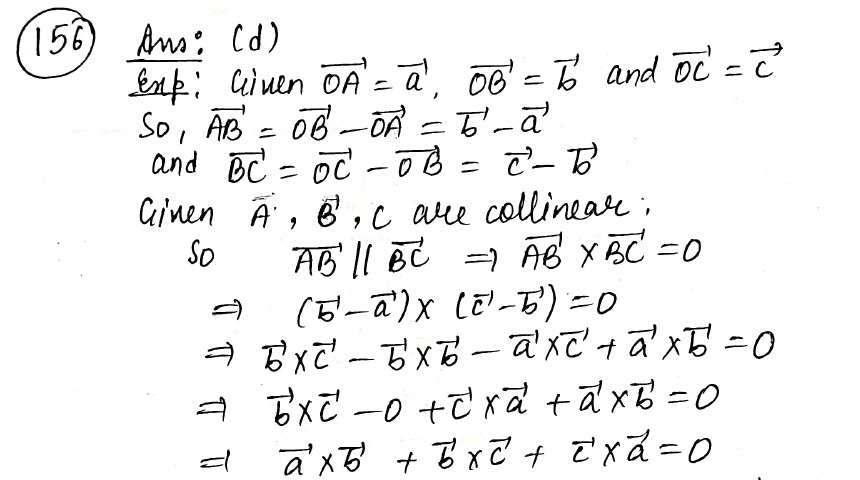 156 Ans: (d)
Exp: Given $\overrightarrow{OA} = \vec{a}$, $\overrightarrow{OB} = \vec{b}$ and $\overrightarrow{OC} = \vec{c}$
So, $\overrightarrow{AB} = \overrightarrow{OB} - \overrightarrow{OA} = \vec{b} - \vec{a}$
and $\overrightarrow{BC} = \overrightarrow{OC} - \overrightarrow{OB} = \vec{c} - \vec{b}$
Given A, B, C are collinear.
So $\overrightarrow{AB} \parallel \overrightarrow{BC} \Rightarrow \overrightarrow{AB} \times \overrightarrow{BC} = 0$
$\Rightarrow (\vec{b} - \vec{a}) \times (\vec{c} - \vec{b}) = 0$
$\Rightarrow \vec{b} \times \vec{c} - \vec{b} \times \vec{b} - \vec{a} \times \vec{c} + \vec{a} \times \vec{b} = 0$
$\Rightarrow \vec{b} \times \vec{c} - 0 + \vec{c} \times \vec{a} + \vec{a} \times \vec{b} = 0$
$\Rightarrow \vec{a} \times \vec{b} + \vec{b} \times \vec{c} + \vec{c} \times \vec{a} = 0$